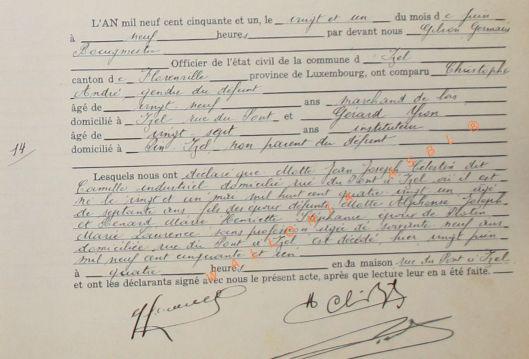 L'AN mil neuf cent cinquante et un, le vingt et un du mois de juin
à neuf heures par devant nous Gilson Germain
Bourgmestre
Officier de l'état civil de la commune d Izel
canton de Florenville province de Luxembourg, ont comparu Christophe
André gendre du défunt
âgé de vingt neuf ans marchand de bois
domicilié à Izel rue du Pont et Gérard Yvon
âgé de vingt sept ans instituteur
domicilié à Izel non parent du défunt
14
Lesquels nous ont déclaré que Motte Jean Joseph Célestin dit
Camille industriel domicilié rue du Pont à Izel où il est
né le vingt et un mai mil huit cent quatre vingt un âgé
de septante ans, fils de feus Motte Alphonse Joseph
et Henard Marie Henriette époux de
Marie Laurence sans profession âgée de soixante neuf ans
domiciliée rue du Pont à Izel, est décédé hier vingt juin
mil neuf cent cinquante et un
à quatre heures en sa maison rue du Pont à Izel
et ont les déclarants signé avec nous le présent acte, après que lecture leur en a été faite.